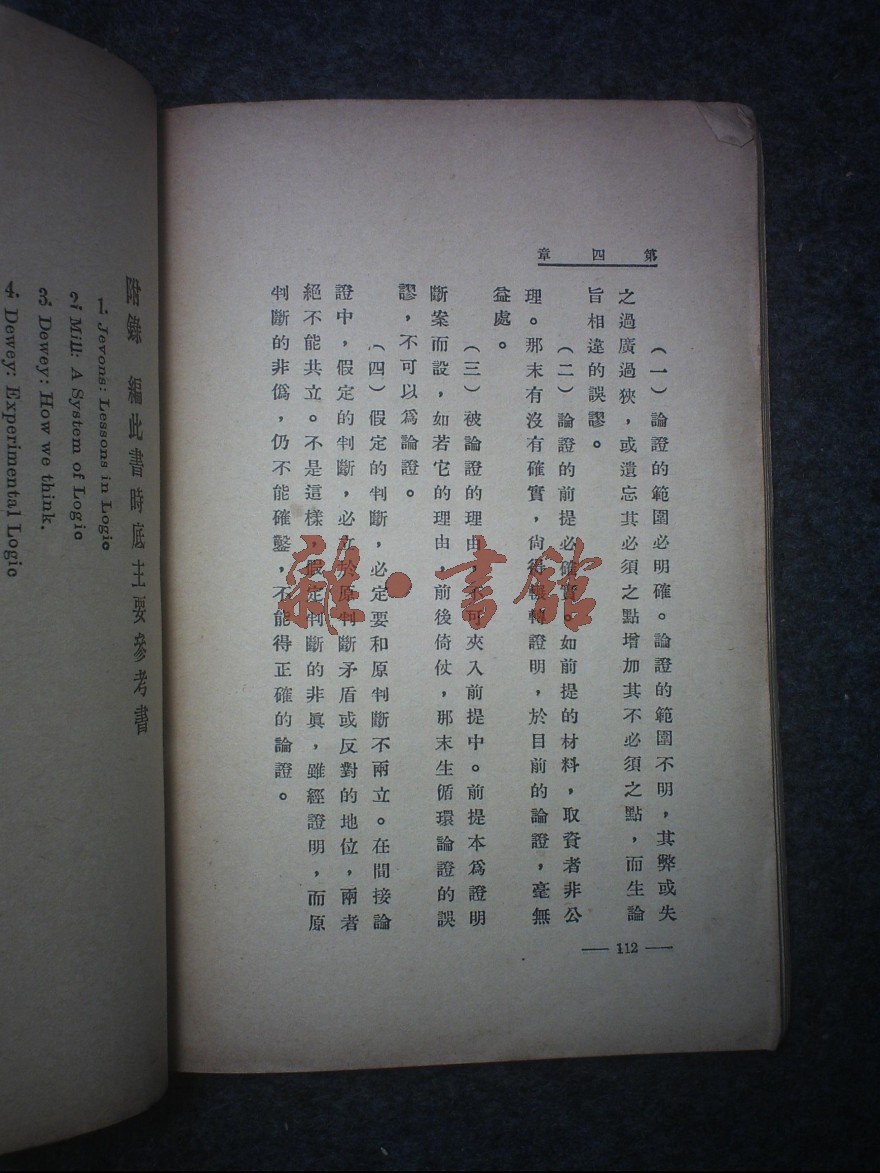 第四章
（一）論證的範圍必明確。論證的範圍不明，其弊或失
之過廣過狹，或遺忘其必須之點增加其不必須之點，而生論
旨相違的誤謬。
（二）論證的前提必確實。如前提的材料，取資者非公
理。那末有沒有確實，尙得輾轉證明，於目前的論證，毫無
益處。
（三）被論證的理由，不可夾入前提中。前提本爲證明
斷案而設，如若它的理由，前後倚仗，那末生循環論證的誤
謬，不可以爲論證。
（四）假定的判斷，必定要和原判斷不兩立。在間接論
證中，假定的判斷，必立於原判斷矛盾或反對的地位，兩者
絕不能共立。不是這樣，假定判斷的非眞，雖經證明，而原
判斷的非僞，仍不能確鑿，不能得正確的論證。
— 112 —
附錄　編此書時底主要參考書
1. Jevons: Lessons in Logic
2. Mill: A System of Logic
3. Dewey: How we think.
4. Dewey: Experimental Logic
雜·書館